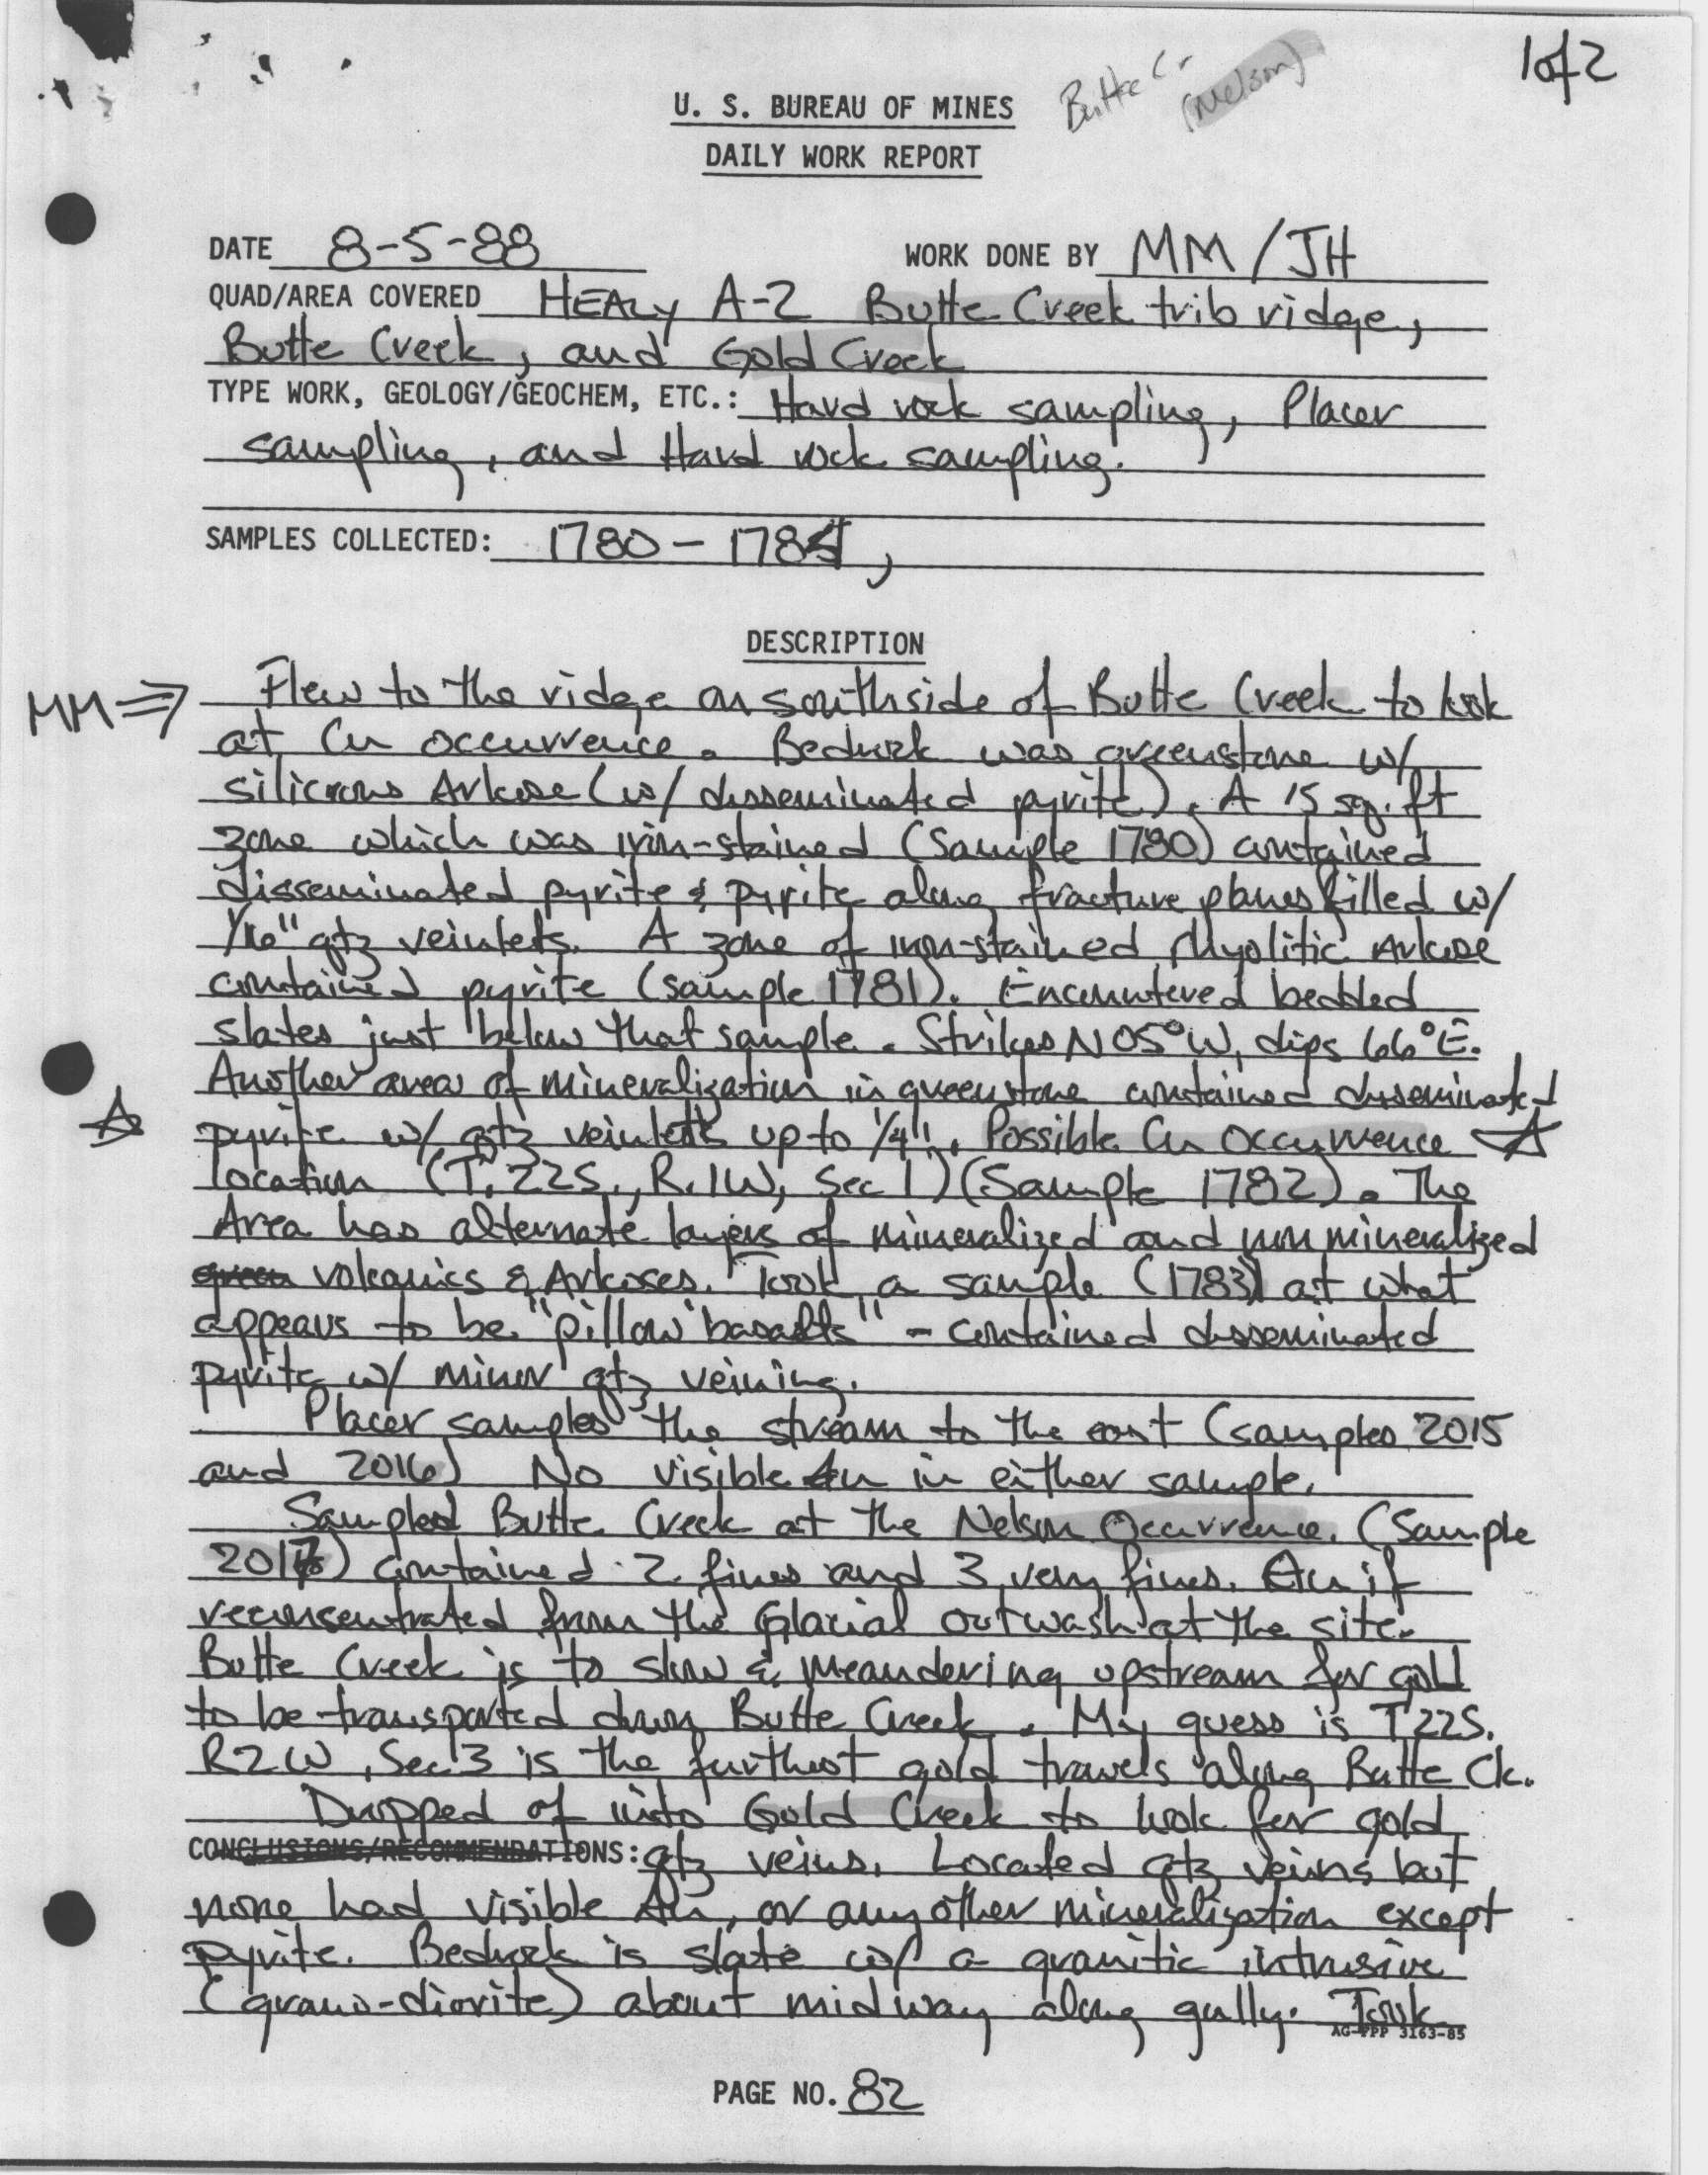 1 of 2
Butte Cr
(Nelson)
U. S. BUREAU OF MINES
DAILY WORK REPORT
DATE 8-5-88 WORK DONE BY MM/JH
QUAD/AREA COVERED HEALY A-2 Butte Creek trib ridge,
Butte Creek, and Gold Creek
TYPE WORK, GEOLOGY/GEOCHEM, ETC.: Hard rock sampling, Placer
sampling, and Hard rock sampling.
SAMPLES COLLECTED: 1780-1784,
DESCRIPTION
MM⇒ Flew to the ridge on southside of Butte Creek to look
at Cu occurrence. Bedrock was greenstone w/
silicious Arkose (w/ disseminated pyrite). A 15 sq. ft
zone which was iron-stained (Sample 1780) contained
disseminated pyrite & pyrite along fracture planes filled w/
1/16" qtz veinlets. A zone of iron-stained Rhyolitic Arkose
contained pyrite (sample 1781). Encountered bedded
slates just below that sample. Strikes N05°W, dips 66°E.
Another area of mineralization in greenstone contained disseminated
☆ pyrite w/ qtz veinlets up to 1/4". Possible Cu Occurrence ☆
location (T. 22S., R.1W, Sec 1) (Sample 1782). The
Area has alternate layers of mineralized and non mineralized
green volcanics & Arkoses. Took a sample (1783) at what
appears to be "pillow basalts" - contained disseminated
pyrite w/ minor qtz veining.
Placer samples the stream to the east (samples 2015
and 2016) No visible Au in either sample.
Sampled Butte Creek at the Nelson Occurrence. (Sample
2017) contained 2 fines and 3 very fines. Au if
reconsentrated from the Glacial outwash at the site.
Butte Creek is to slow & meandering upstream for gold
to be transported down Butte Creek. My guess is T22S.
R2W, Sec 3 is the furthest gold travels along Butte Ck.
Dropped of into Gold Creek to look for gold
CONCLUSIONS/RECOMMENDATIONS: qtz veins. Located qtz veins but
none had visible Au, or any other mineralization except
pyrite. Bedrock is slate w/ a granitic intrusive
(grano-diorite) about midway along gully. Took
AG-PPP 3163-85
PAGE NO. 82